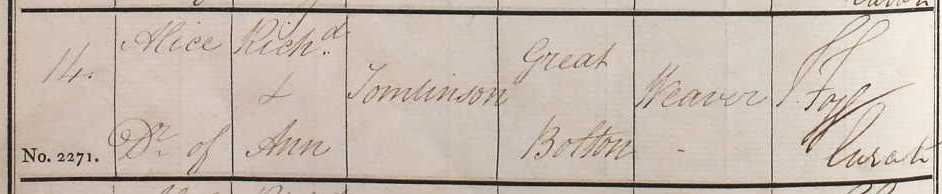 14.
Alice
Dr. of
Richd.
&
Ann
Tomlinson
Great
Bolton
Weaver
Curate
No. 2271.